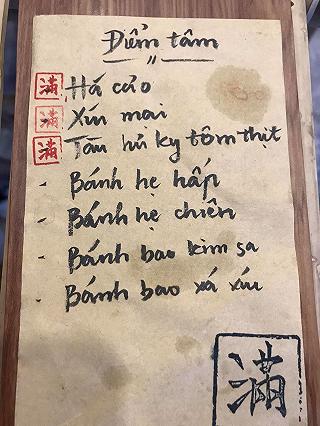 Điểm tâm
滿 Há cảo
滿 Xíu mại
滿 Tàu hủ ky tôm thịt
- Bánh hẹ hấp
- Bánh hẹ chiên
- Bánh bao kim sa
- Bánh bao xá xíu
滿